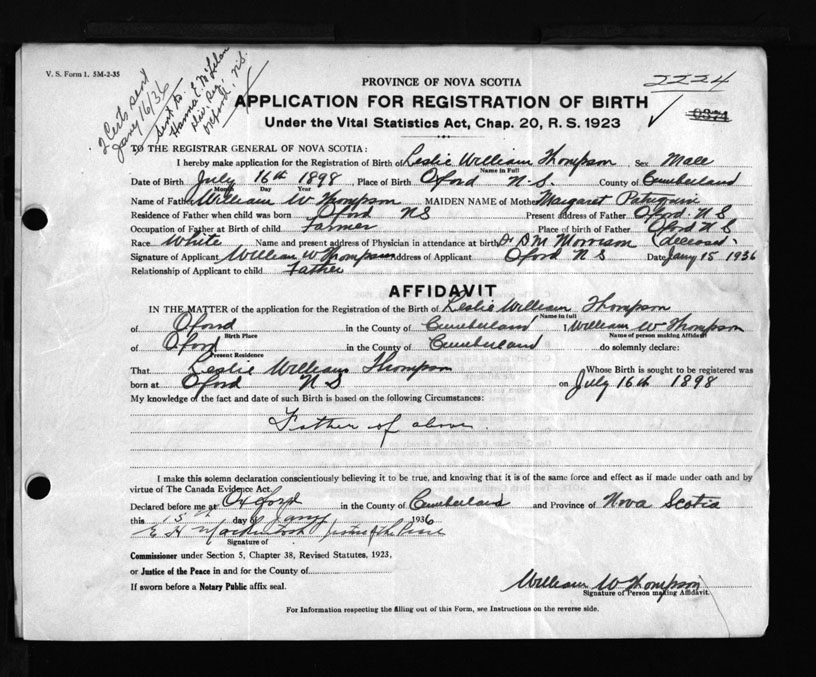 V. S. Form 1. 5M-2-35
2 Certs sent
Jany 16/36
sent to
Div. Reg.
Oxford. N.S.
2224
0374
PROVINCE OF NOVA SCOTIA
APPLICATION FOR REGISTRATION OF BIRTH
Under the Vital Statistics Act, Chap. 20, R. S. 1923
TO THE REGISTRAR GENERAL OF NOVA SCOTIA:
I hereby make application for the Registration of Birth of Leslie William Thompson Sex Male
Name in Full
Date of Birth July 16th 1898, Place of Birth Oxford N.S. County of Cumberland
Month Day Year
Name of Father William W Thompson MAIDEN NAME of Mother Margaret
Residence of Father when child was born Oxford NS Present address of Father Oxford. N S
Occupation of Father at Birth of child Farmer Place of birth of Father Oxford N S
Race White Name and present address of Physician in attendance at birth Dr D M Morrison (deceased)
Signature of Applicant William W Thompson Address of Applicant Oxford N S Date Jany 15 1936
Relationship of Applicant to child Father
AFFIDAVIT
IN THE MATTER of the application for the Registration of the Birth of Leslie William Thompson
Name in full
of Oxford in the County of Cumberland I, William W Thompson
Birth Place Name of person making Affidavit
of Oxford in the County of Cumberland do solemnly declare:
Present Residence
That Leslie William Thompson Whose Birth is sought to be registered was
born at Oxford N S on July 16th 1898
My knowledge of the fact and date of such Birth is based on the following Circumstances:
Father of above
I make this solemn declaration conscientiously believing it to be true, and knowing that it is of the same force and effect as if made under oath and by
virtue of The Canada Evidence Act.
Declared before me at Oxford in the County of Cumberland and Province of Nova Scotia
this 15th day of Jany 1936
E H Justice of the Peace
Signature of
Commissioner under Section 5, Chapter 38, Revised Statutes, 1923,
or Justice of the Peace in and for the County of
If sworn before a Notary Public affix seal.
William W Thompson
Signature of Person making Affidavit.
For Information respecting the filling out of this Form, see Instructions on the reverse side.